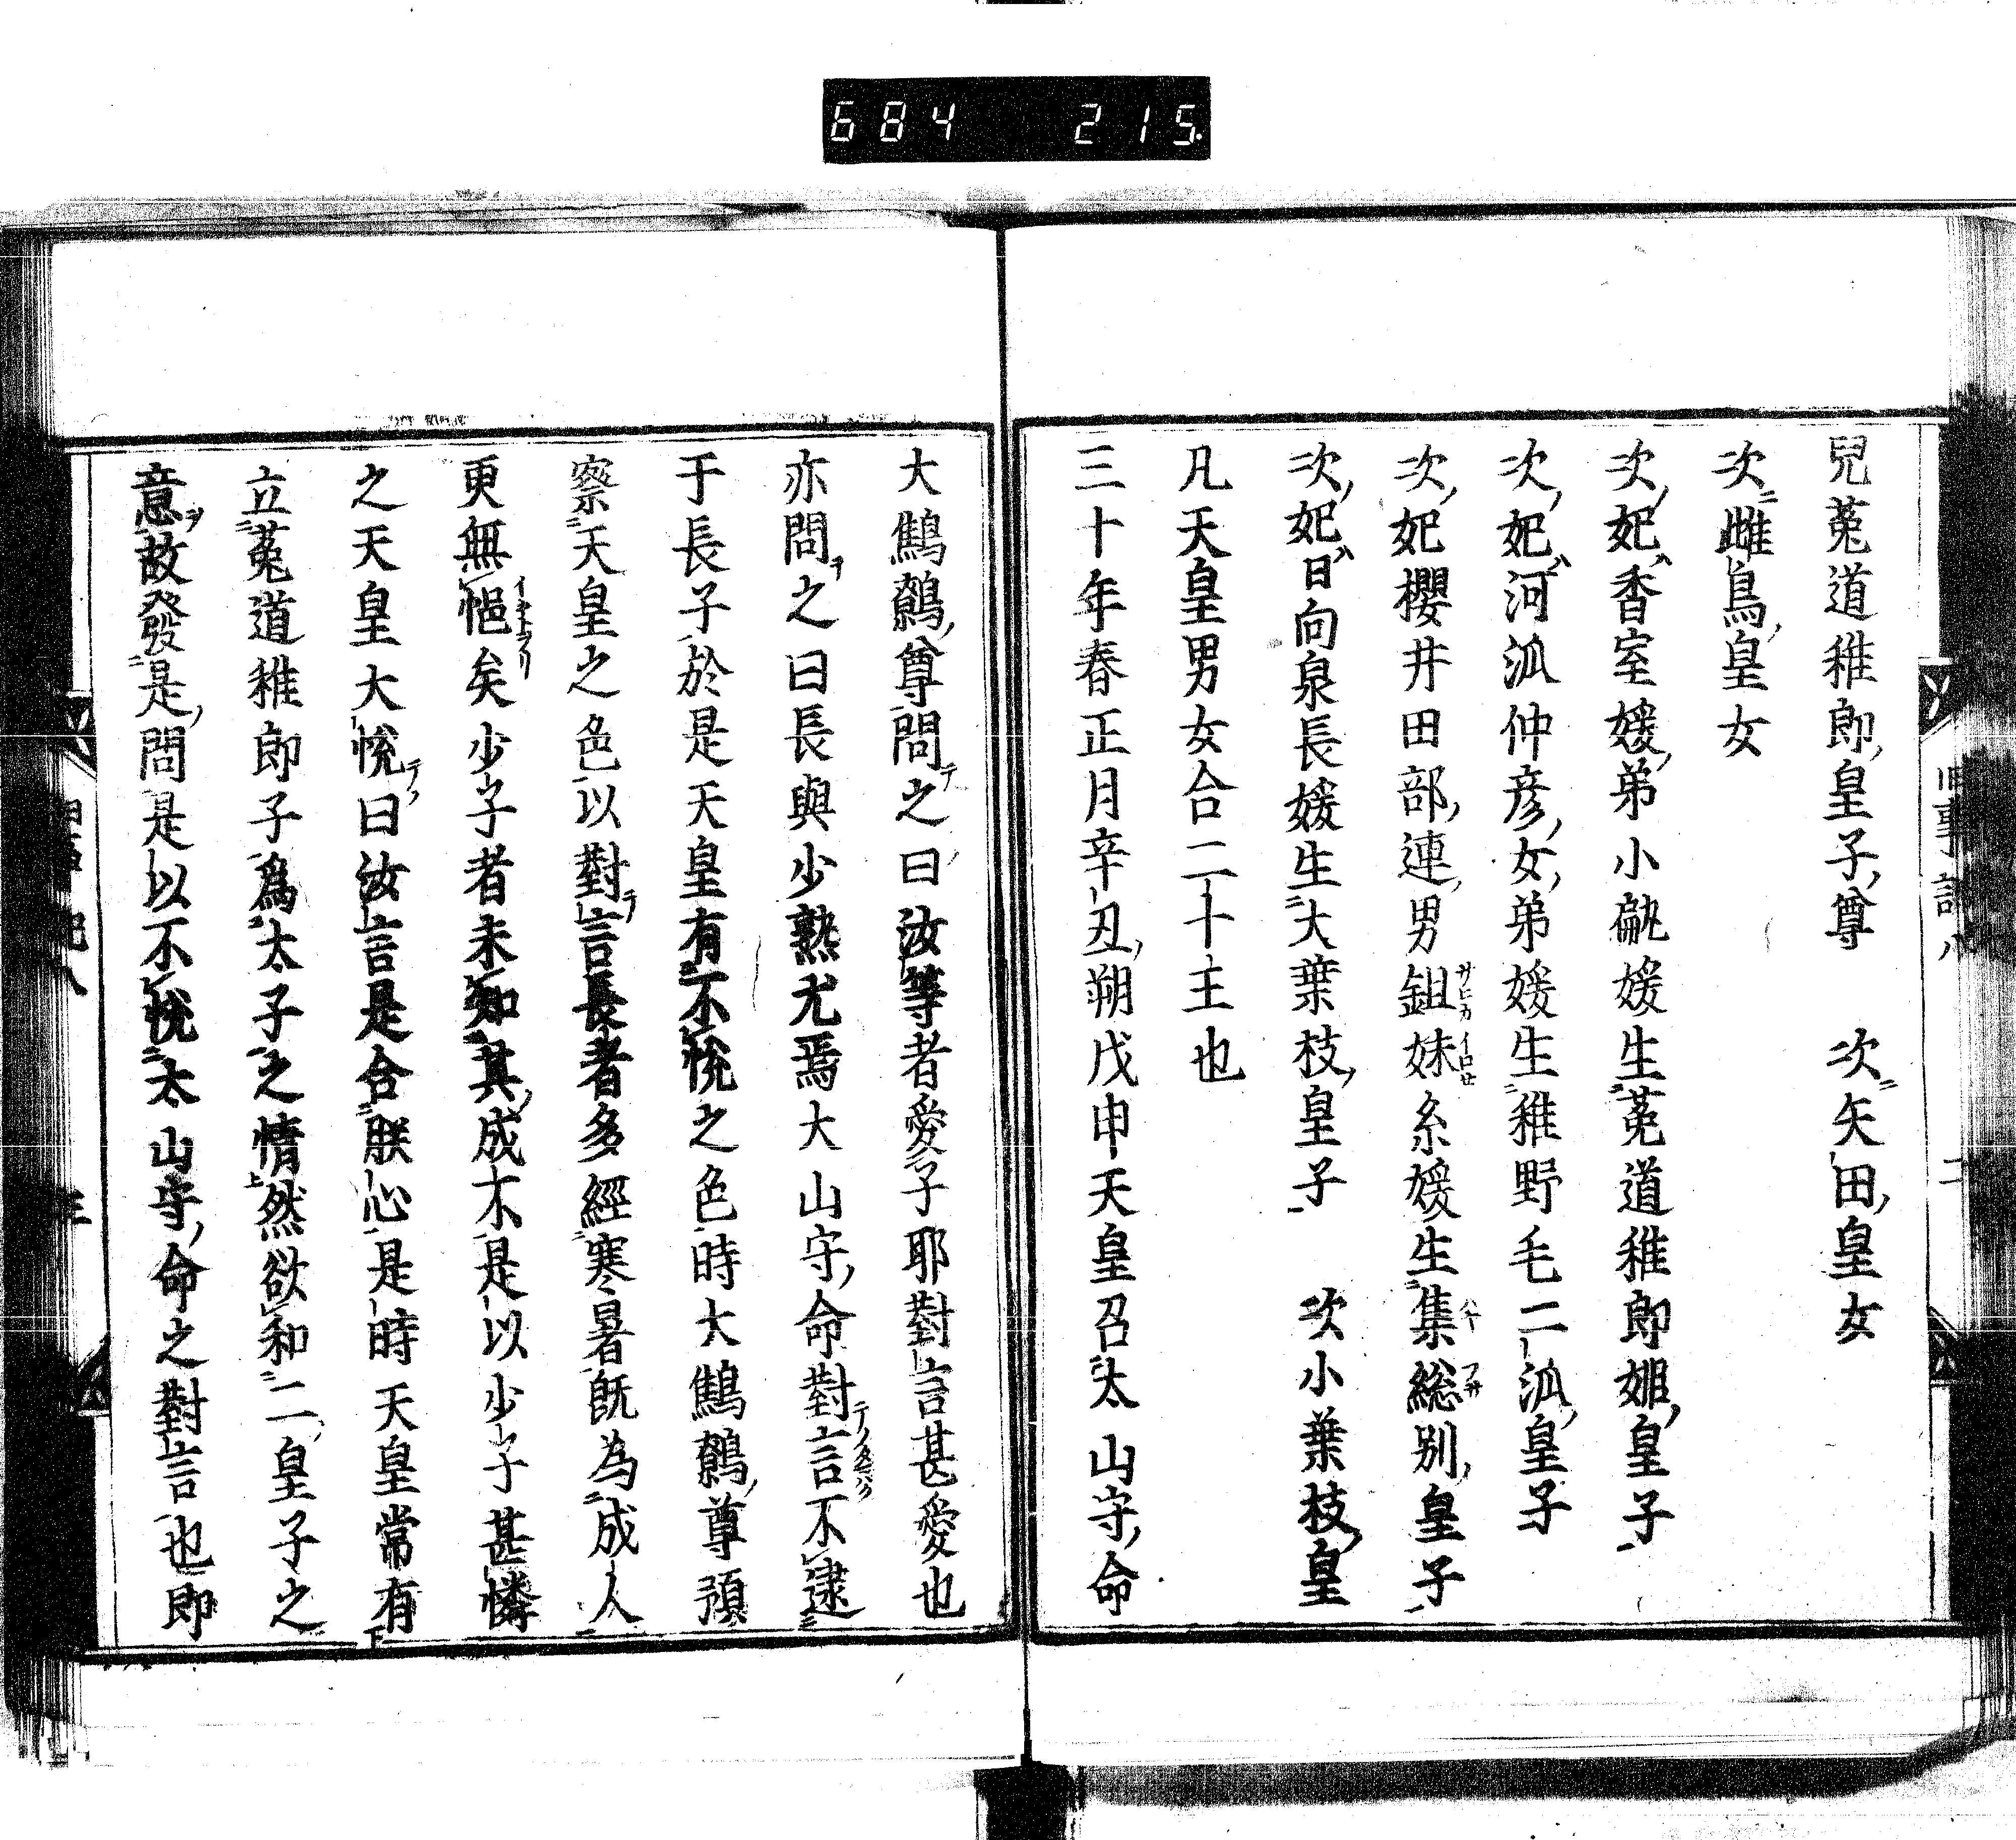 684 215
兒菟道稚郎皇子尊　次矢田皇女
次雌鳥皇女
次妃香室媛弟小甂媛生菟道稚郎姬皇子
次妃河派仲彦女弟媛生稚野毛二派皇子
次妃櫻井田部連男鉏妹糸媛生集総別皇子
次妃日向泉長媛生大葉枝皇子　次小葉枝皇
凡天皇男女合二十王也
三十年春正月辛丑朔戊申天皇召太山守命
大鷦鷯尊問之曰汝等者愛子耶對言甚愛也
亦問之曰長與少熟尤焉大山守命對言不逮
于長子於是天皇有不悅之色時大鷦鷯尊預
察天皇之色以對言長者多經寒暑既為成人
更無悒矣少子者未知其成不是以少子甚憐
之天皇大悅曰汝言是合朕心是時天皇常有
立菟道稚郎子爲太子之情然欲和二皇子之
意故發是問是以不悅太山守命之對言也即